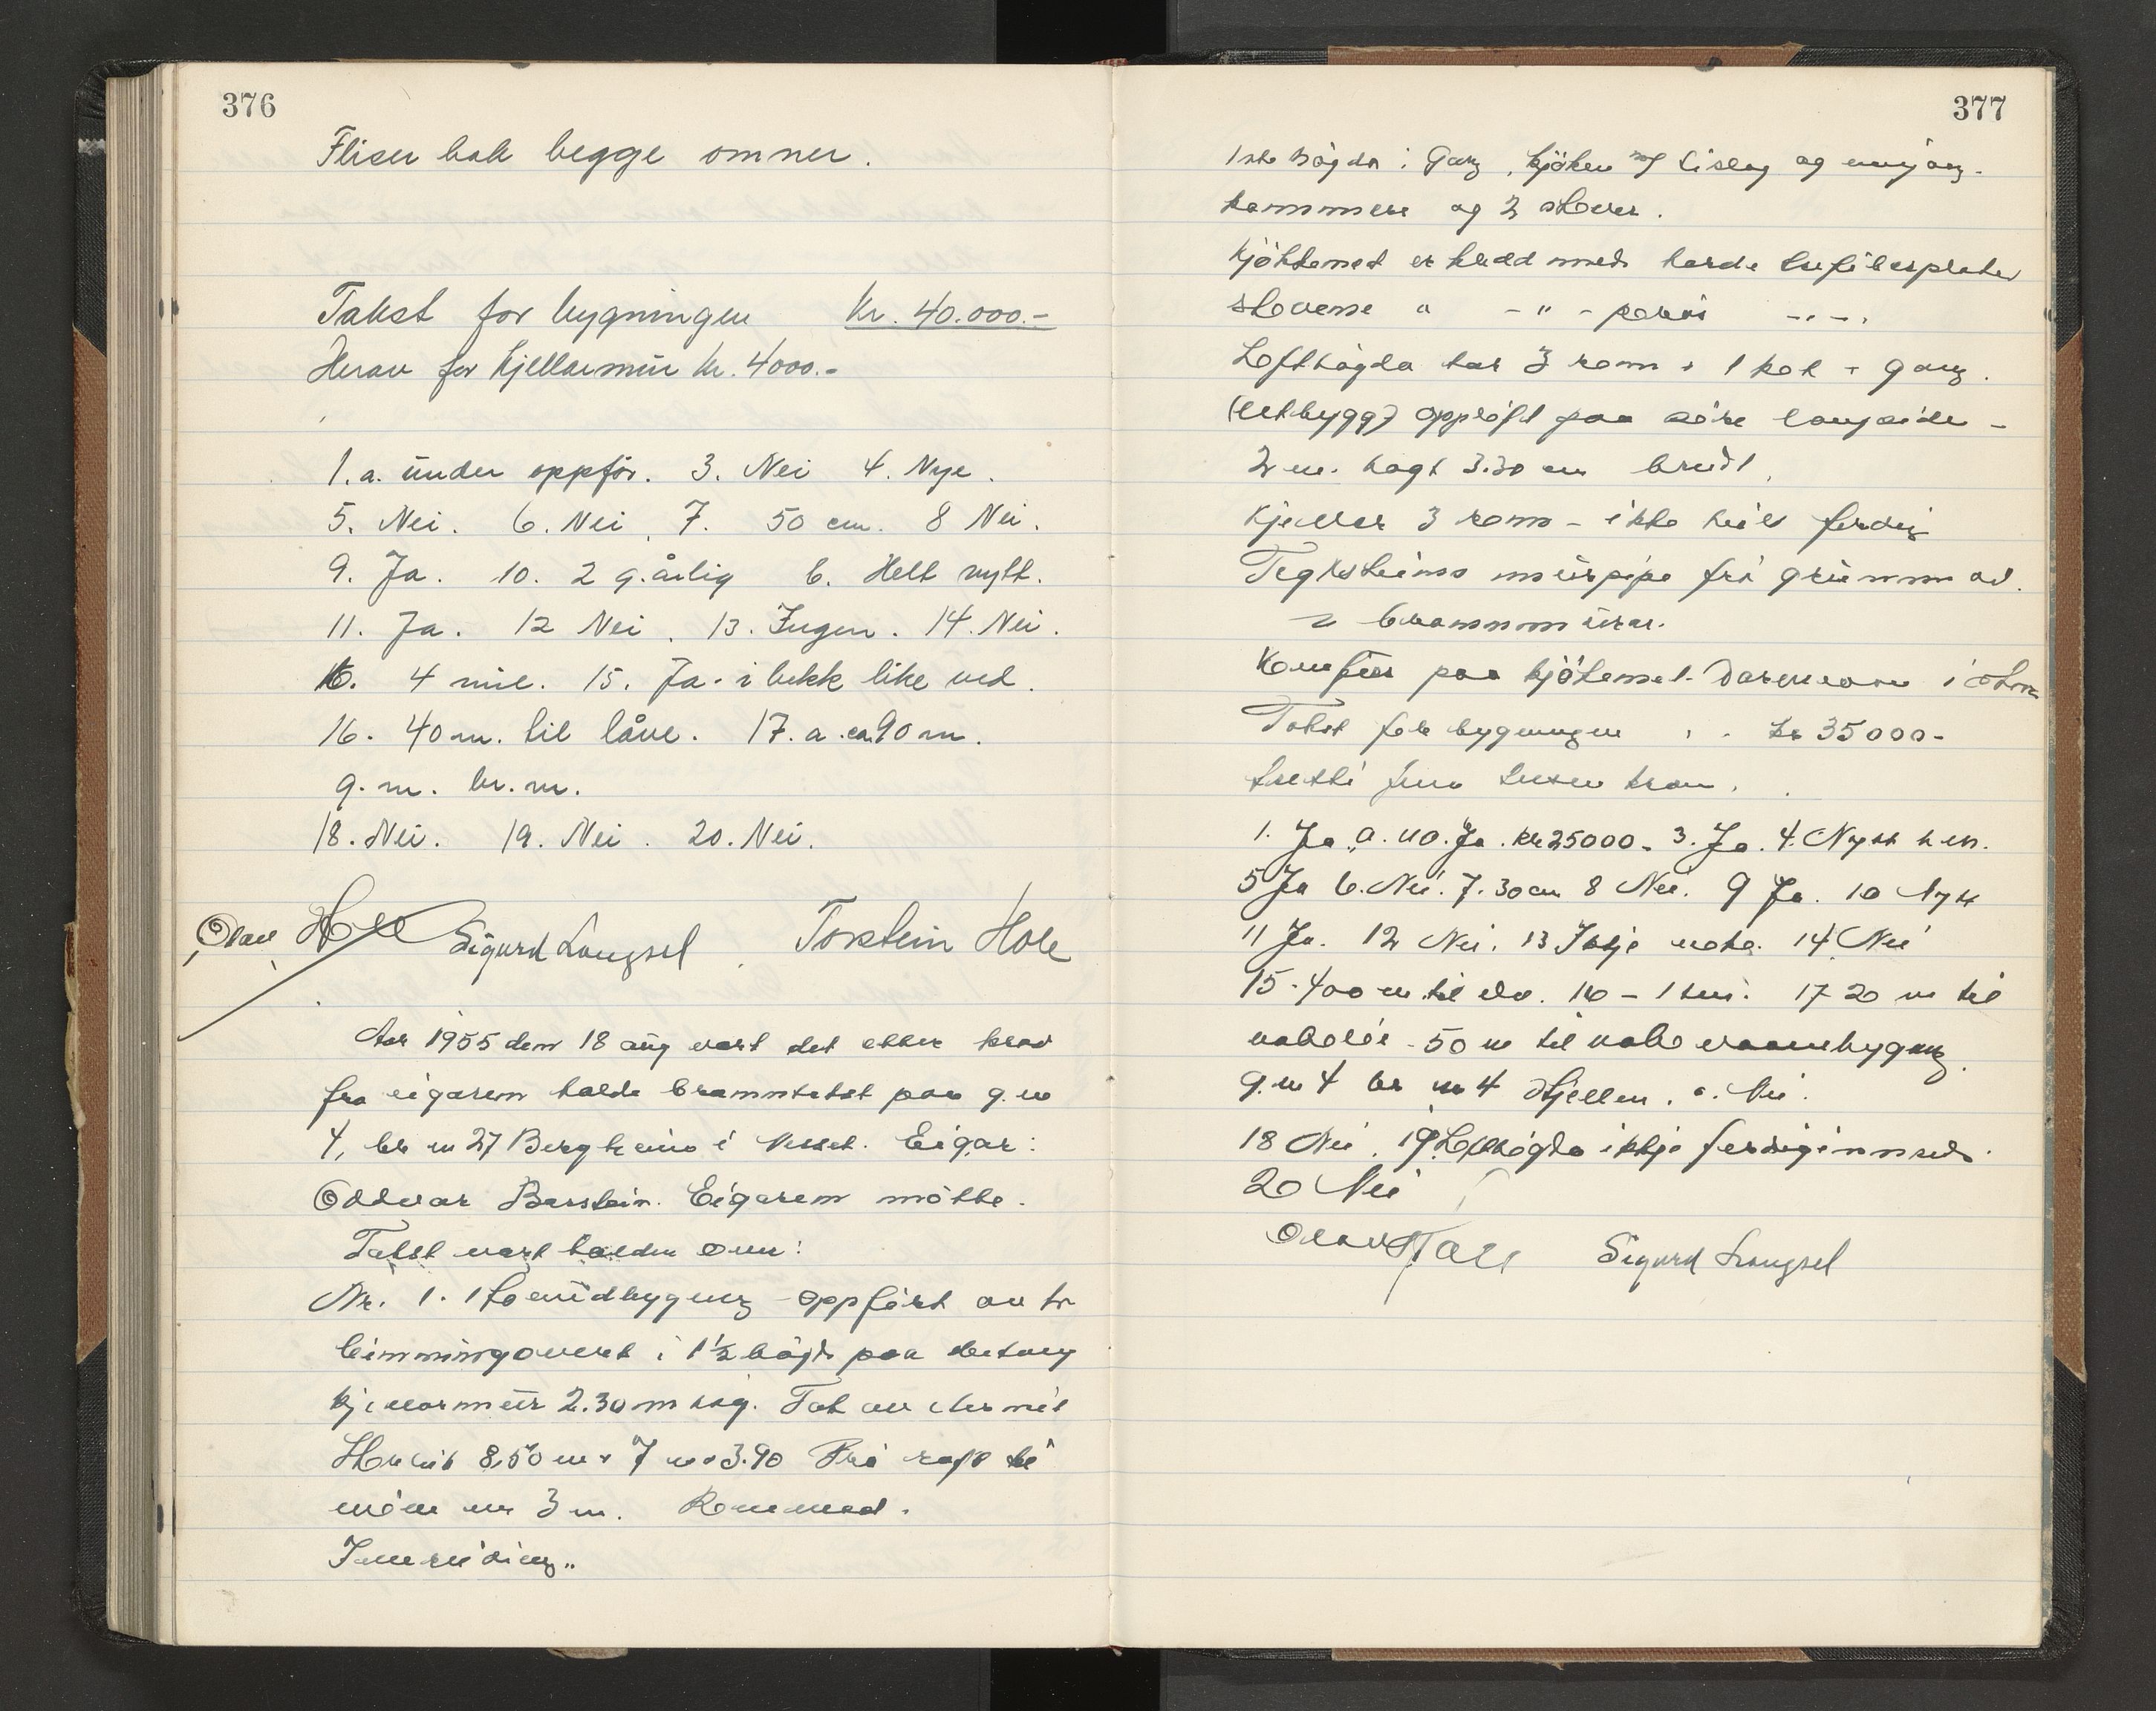 376
Fliser bak begge omner.
Takst for bygningen Kr. 40.000.-
Herav for kjellarmur kr. 4000.-
1. a. under oppför. 3. Nei 4. Nye.
5. Nei. 6. Nei. 7. 50 cm. 8 Nei.
9. Ja. 10. 2 g. årlig b. Helt nytt.
11. Ja. 12 Nei. 13. Ingen. 14. Nei.
16. 4 mil. 15. Ja. i bekk like ved.
16. 40 m. til låve. 17. a. ca. 90 m.
g. nr. br. nr.
18. Nei. 19. Nei. 20. Nei.
Olav Hole Sigurd Langset Torstein Hole
Aar 1955 den 18 aug vart det etter krav
fra eigaren halde branntakst paa g. nr
4, br nr 27 Bergheim i Nesset. Eigar:
Oddvar Barstein. Eigaren mötte.
Takst vart halden over:
Nr. 1. 1 bygning oppfört av
bimningsverk i 1½ högd paa
kjellarmur 2.30 m hög. Tak av
8,50 m x 7 m x 3.90 Frå raft til
möne er 3 m.
Innreiding"
377
1ste högda: Gang, kjöken og
kammers og 2 stover.
Kjökenet er kledd med harde trefiberplater
stovene " - " - porös - " - .
Lofthögda har 3 rom + 1 kot + gang.
(Utbygg) opplöft paa söre langside -
2 m. högt 3.30 m breidt.
Kjeller 3 rom - ikke heilt ferdig
Teglsteins murpipe frå grunnen av.
2 brannmurar.
Komfyr paa kjökenet. i stova
Takst for bygningen kr 35000-
tretti fem tusen kron.
1. Ja. a. u o. Ja. kr 25000. 3. Ja. 4. Nytt
5 Ja 6. Nei. 7. 30 cm 8 Nei. 9 Ja. 10 Nytt
11 Ja. 12 Nei. 13 Ikkje 14 Nei
15. 400 m til elv. 16 - 1 17 20 m til
50 m til nabo vaanebygning.
g. nr 4 br nr 4 Hjellen. Nei.
18 Nei. 19 Lofthögda ikkje ferdiginnreid.
20 Nei
Olav Hole Sigurd Langset